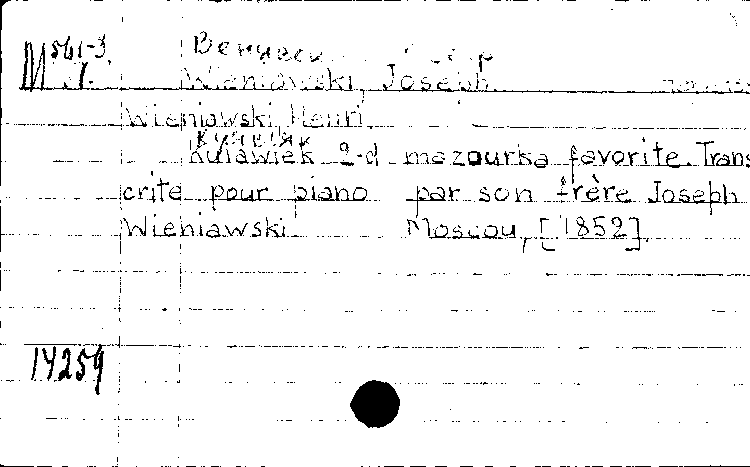 M 561-3
Wieniawski, Joseph
Wieniawski, Henri
Kujawiak
Kulawiek 2-d mazourka favorite. Trans
crite pour piano par son frère Joseph
Wieniawski. Moscou, [1852]
14259